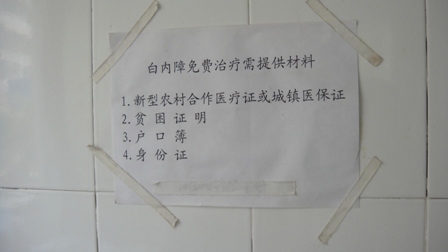 白内障免费治疗需提供材料
1.新型农村合作医疗证或城镇医保证
2.贫困证明
3.户口薄
4.身份证